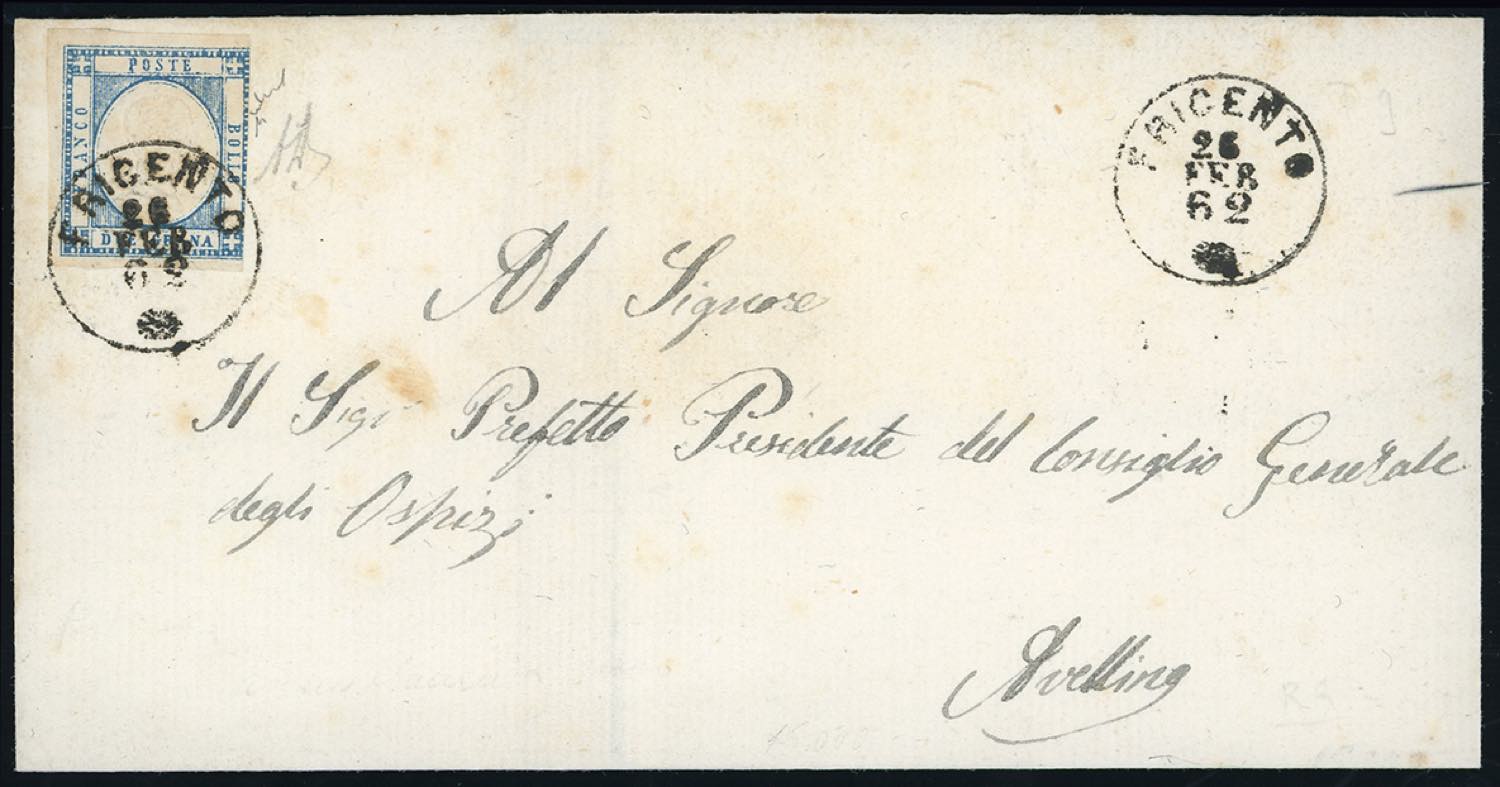 POSTE
FRANCO
BOLLO
DUE GRANA
FRIGENTO
26
FEB
62
FRIGENTO
26
FEB
62
Al Signore
Il Sigr Prefetto Presidente del Consiglio Generale
degli Ospizj
Avellino